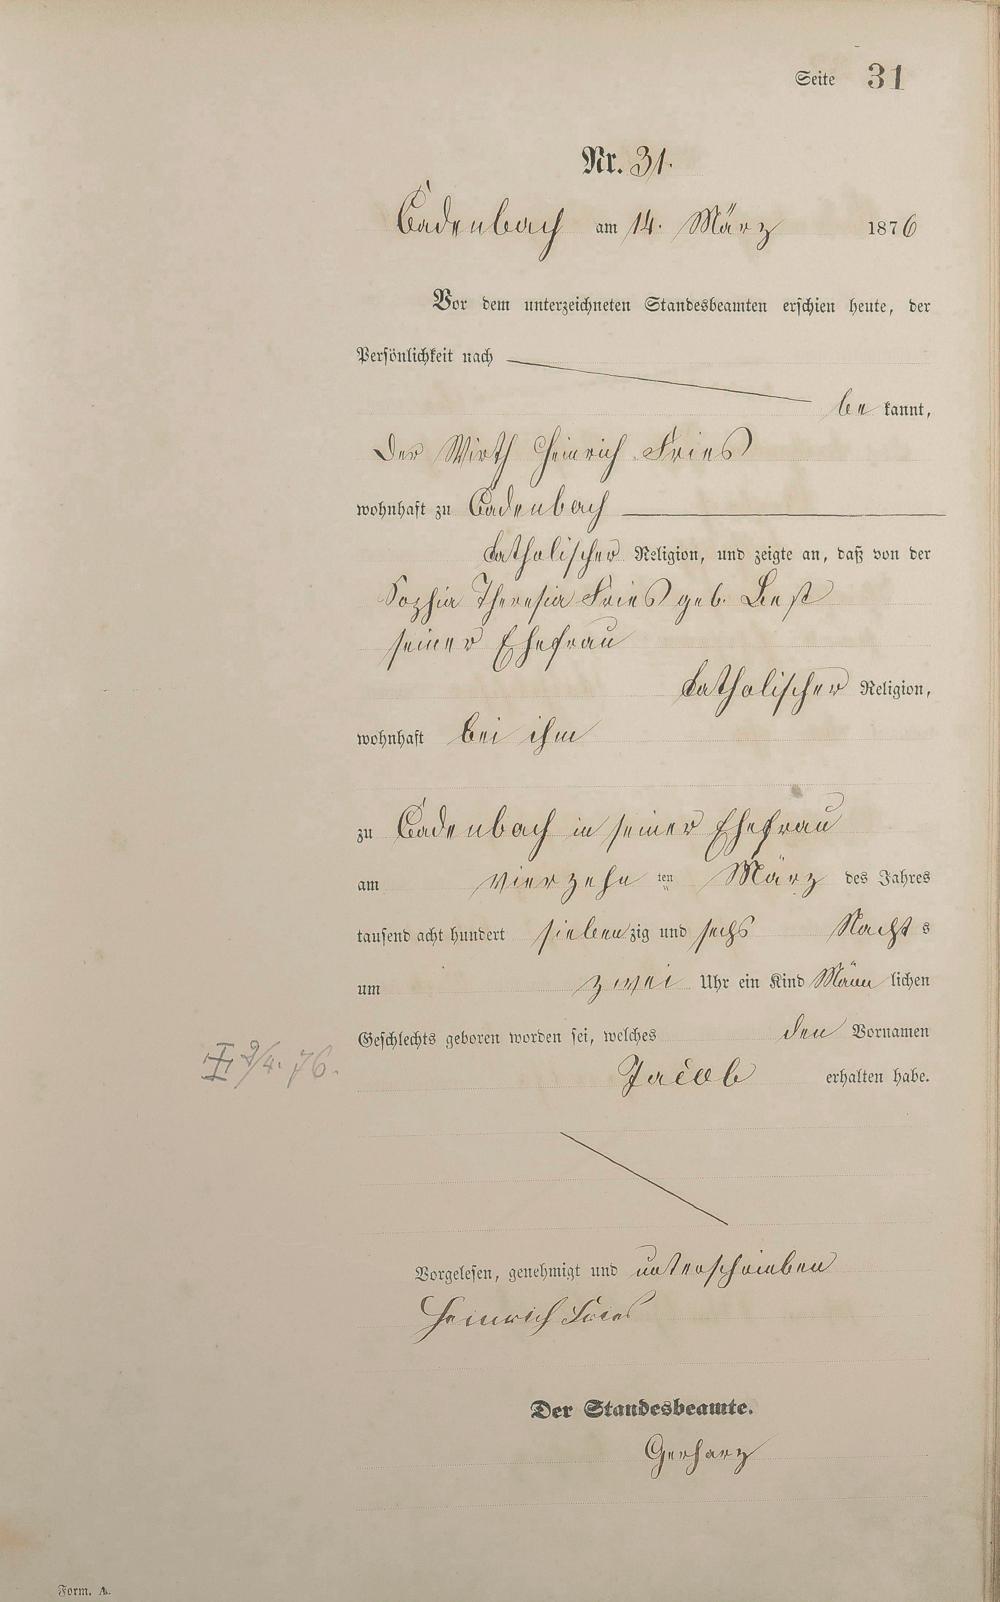 Seite 31
Nr. 31.
Cadenbach am 14. März 1876
Vor dem unterzeichneten Standesbeamten erschien heute, der
Persönlichkeit nach
be kannt,
der Wirth Heinrich Fries
wohnhaft zu Cadenbach
katholischer Religion, und zeigte an, daß von der
Sophia Theresia Fries geb. Best
seiner Ehefrau
katholischer Religion,
wohnhaft bei ihm
zu Cadenbach in seiner Ehefrau
am vierzehn ten März des Jahres
tausend acht hundert siebenzig und sechs Nacht s
um zwei Uhr ein Kind Männ lichen
Geschlechts geboren worden sei, welches den Vornamen
9/4. 76.
Jacob erhalten habe.
Vorgelesen, genehmigt und unterschrieben
Heinrich Fries
Der Standesbeamte.
Gerharz
Form. A.